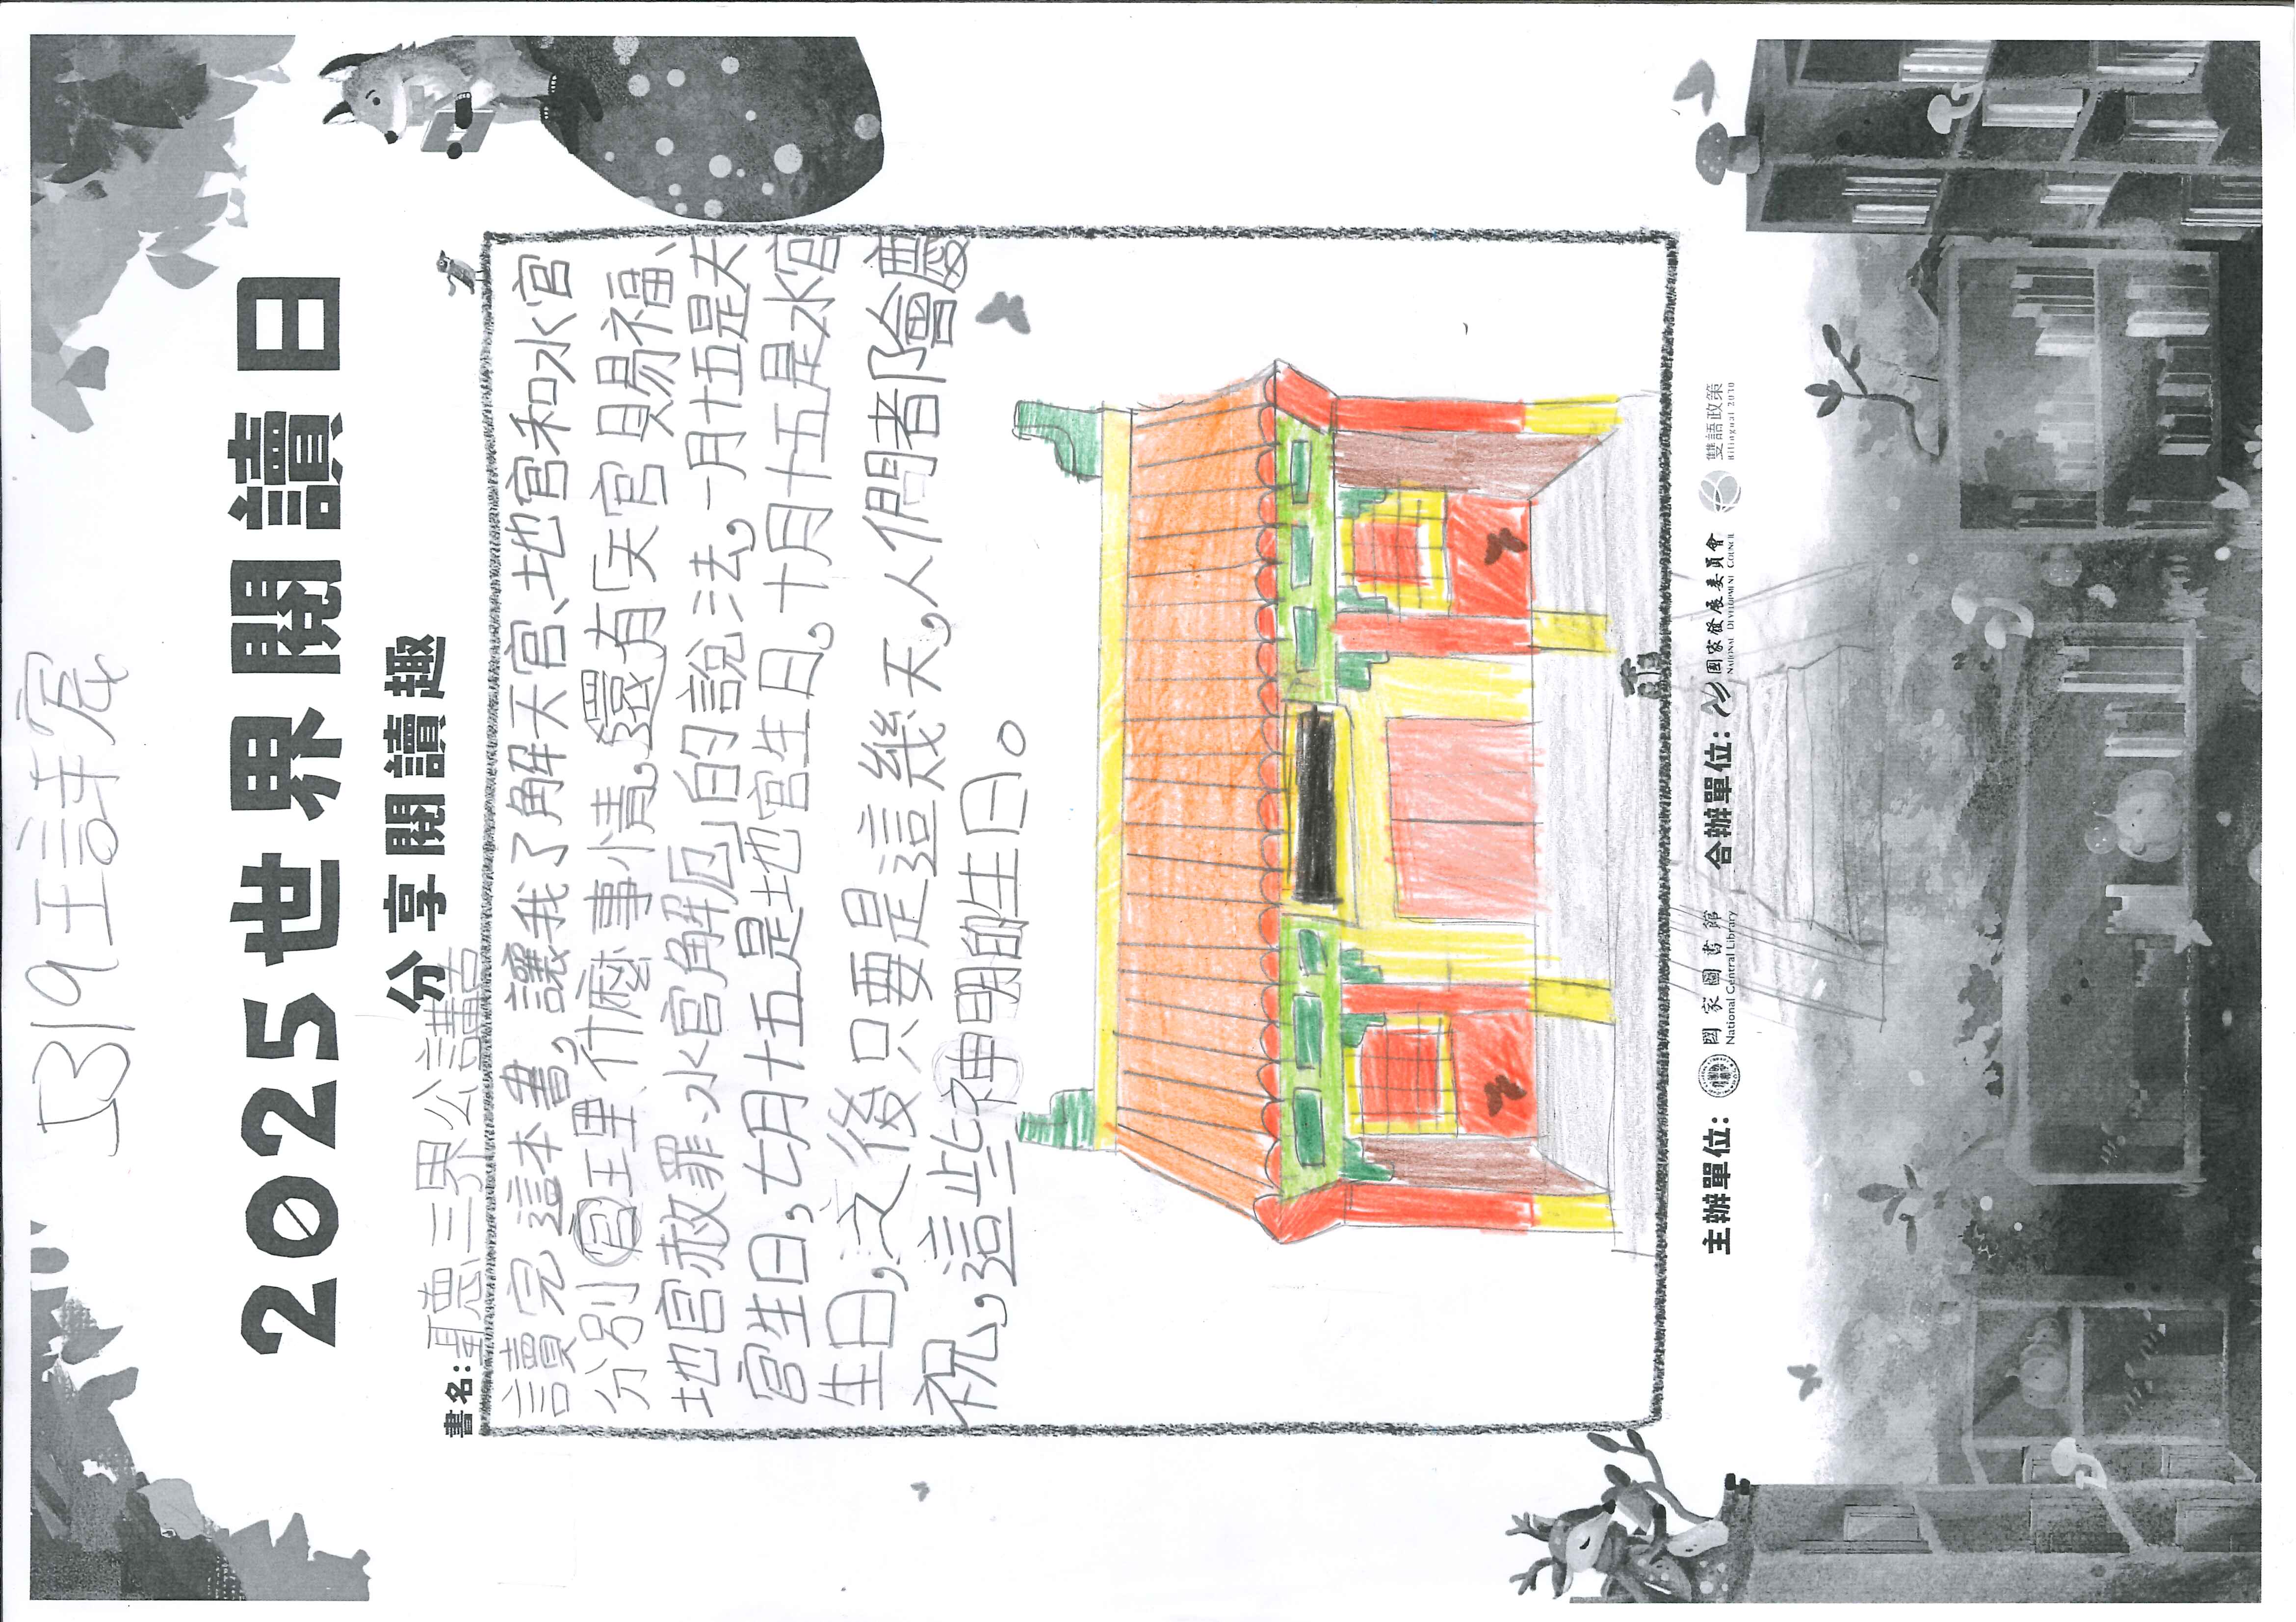 王詳宸
2025世界閱讀日
分享閱讀趣
書名：聽三界公講
讀完這本書，讓我了解天官、地官和水官
分別官理什麼事情，還有「天官賜福、
地官赦罪、水官解厄」的說法，一月十五是天
官生日，七月十五是地官生日，十月十五是水官
生日，之後只要是這幾天，人們都會慶
祝，這些神明的生日。
主辦單位：國家圖書館 National Central Library 合辦單位：國家發展委員會 NATIONAL DEVELOPMENT COUNCIL 雙語政策 Bilingual 2030